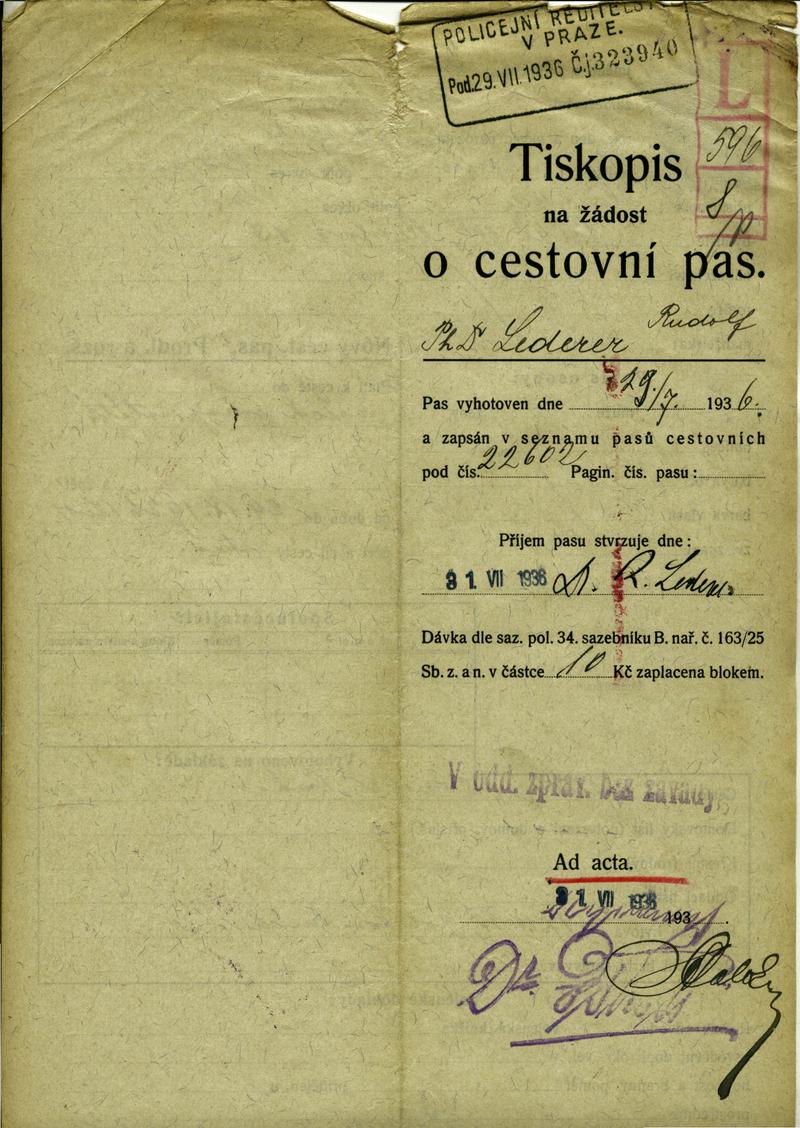 POLICEJNÍ ŘEDITELST
V PRAZE.
Pod. 29. VII. 1936 Č.j. 323940
L
596
8/p
Tiskopis
na žádost
o cestovní pas.
Rudolf
PhDr Lederer
Pas vyhotoven dne 29/7. 1936.
a zapsán v seznamu pasů cestovních
pod čís. 22602 Pagin. čís. pasu:
Příjem pasu stvrzuje dne:
31. VII 1936 Dr. R. Lederer
Dávka dle saz. pol. 34. sazebníku B. nař. č. 163/25
Sb. z. a n. v částce 10 Kč zaplacena blokem.
V odd. zprav. bez závady.
Ad acta.
31. VII 1936
193 .
Dr.